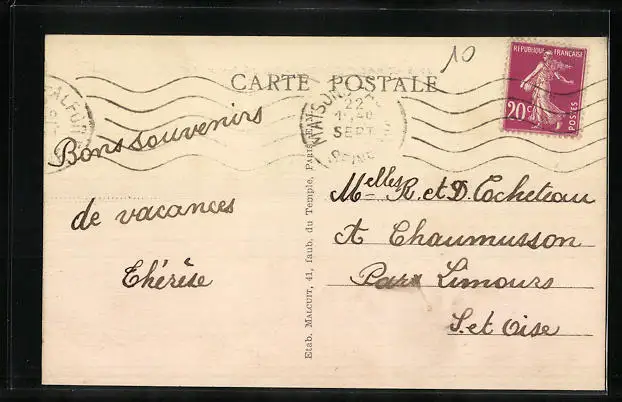 10
RÉPUBLIQUE FRANÇAISE
20c
POSTES
CARTE POSTALE
22
SEPT
SEINE
Bons souvenirs
de vacances
Thérèse
Etab. MALCUIT, 41, faub. du Temple, PARIS
Melles R. et D. Cocheteau
A Chaumusson
Par Limours
S. et Oise